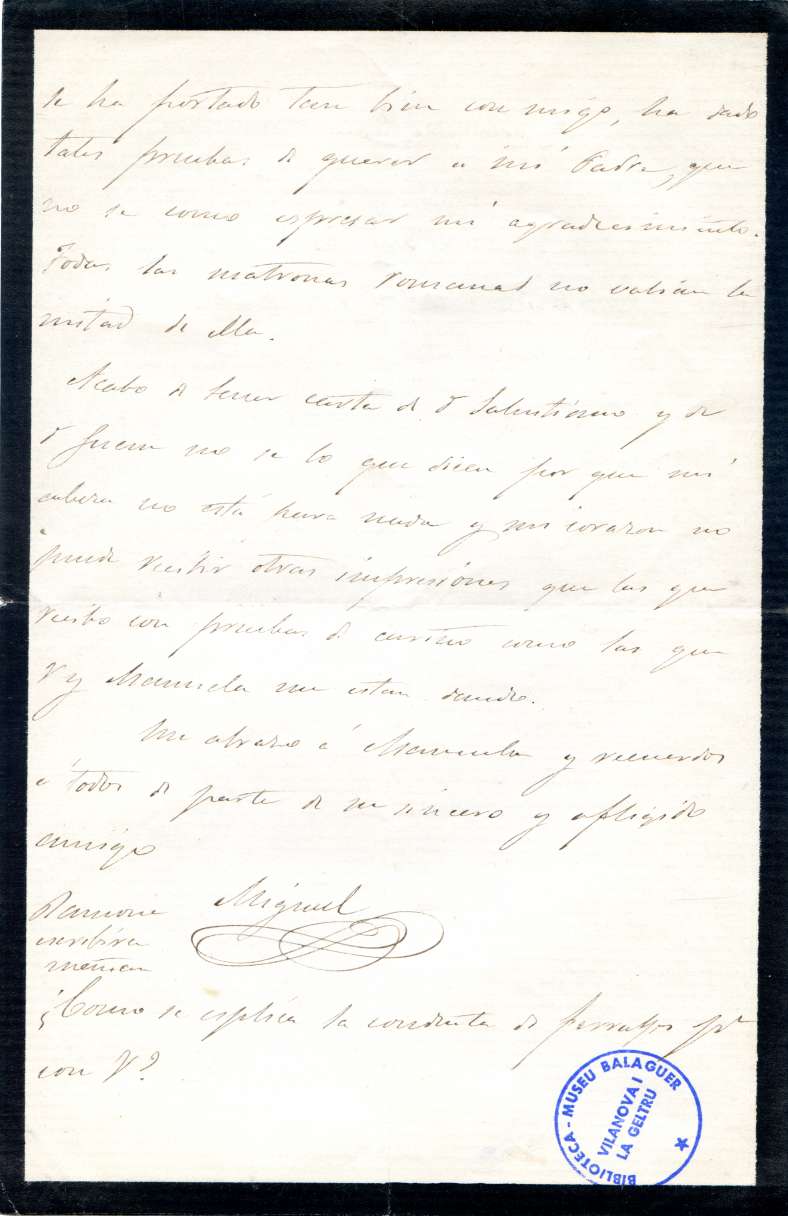 se ha portado tan bien con migo, ha dado
tales pruebas de querer a mi Padre, que
no se como espresar mi agradecimiento.
Todas las matronas romanas no valian la
mitad de ella.
Acabo de tener carta de D Salustiano y de
D no se lo que dicen por que mi
cabeza no está para nada y mi corazon no
puede recibir otras impresiones que las que
recibo con pruebas de cariño como las que
V y Manuela me estan dando.
Un abrazo á Manuela y recuerdos
á todos de parte de su sincero y afligido
amigo
Miguel
Ramona
escribira
mañana
¿Como se esplica la conducta de pª
con V?
BIBLIOTECA - MUSEU BALAGUER
VILANOVA I
LA GELTRU